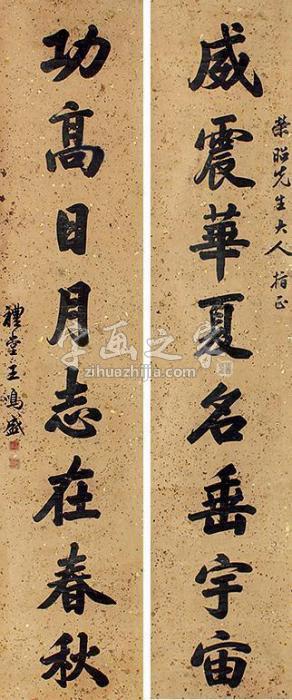 榮昭先生大人指正
威震華夏名垂宇宙
功高日月志在春秋
禮堂王鳴盛
字画之家
zihuazhijia.com